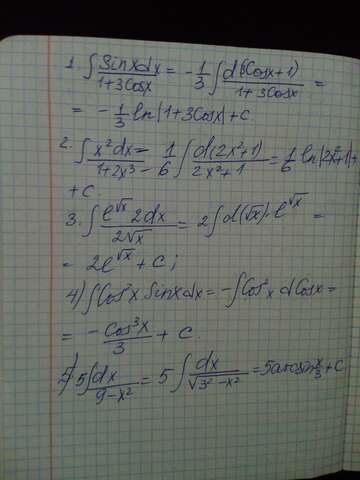 1. ∫ Sinxdx / 1+3Cosx = - 1/3 ∫ d(3Cosx+1) / 1+3Cosx =
= - 1/3 ln|1+3Cosx| + c.
2. ∫ x²dx / 1+2x³ = 1/6 ∫ d(2x³+1) / 2x³+1 = 1/6 ln|2x³+1| +
+ c.
3. ∫ e^√x 2dx / 2√x = 2∫ d(√x)·e^√x =
= 2e^√x + c;
4) ∫ Cos²x Sinxdx = -∫Cos²x dCosx =
= -Cos³x / 3 + c.
5) 5∫ dx / 9-x² = 5 ∫ dx / √3²-x² = 5arcsin x/3 + c